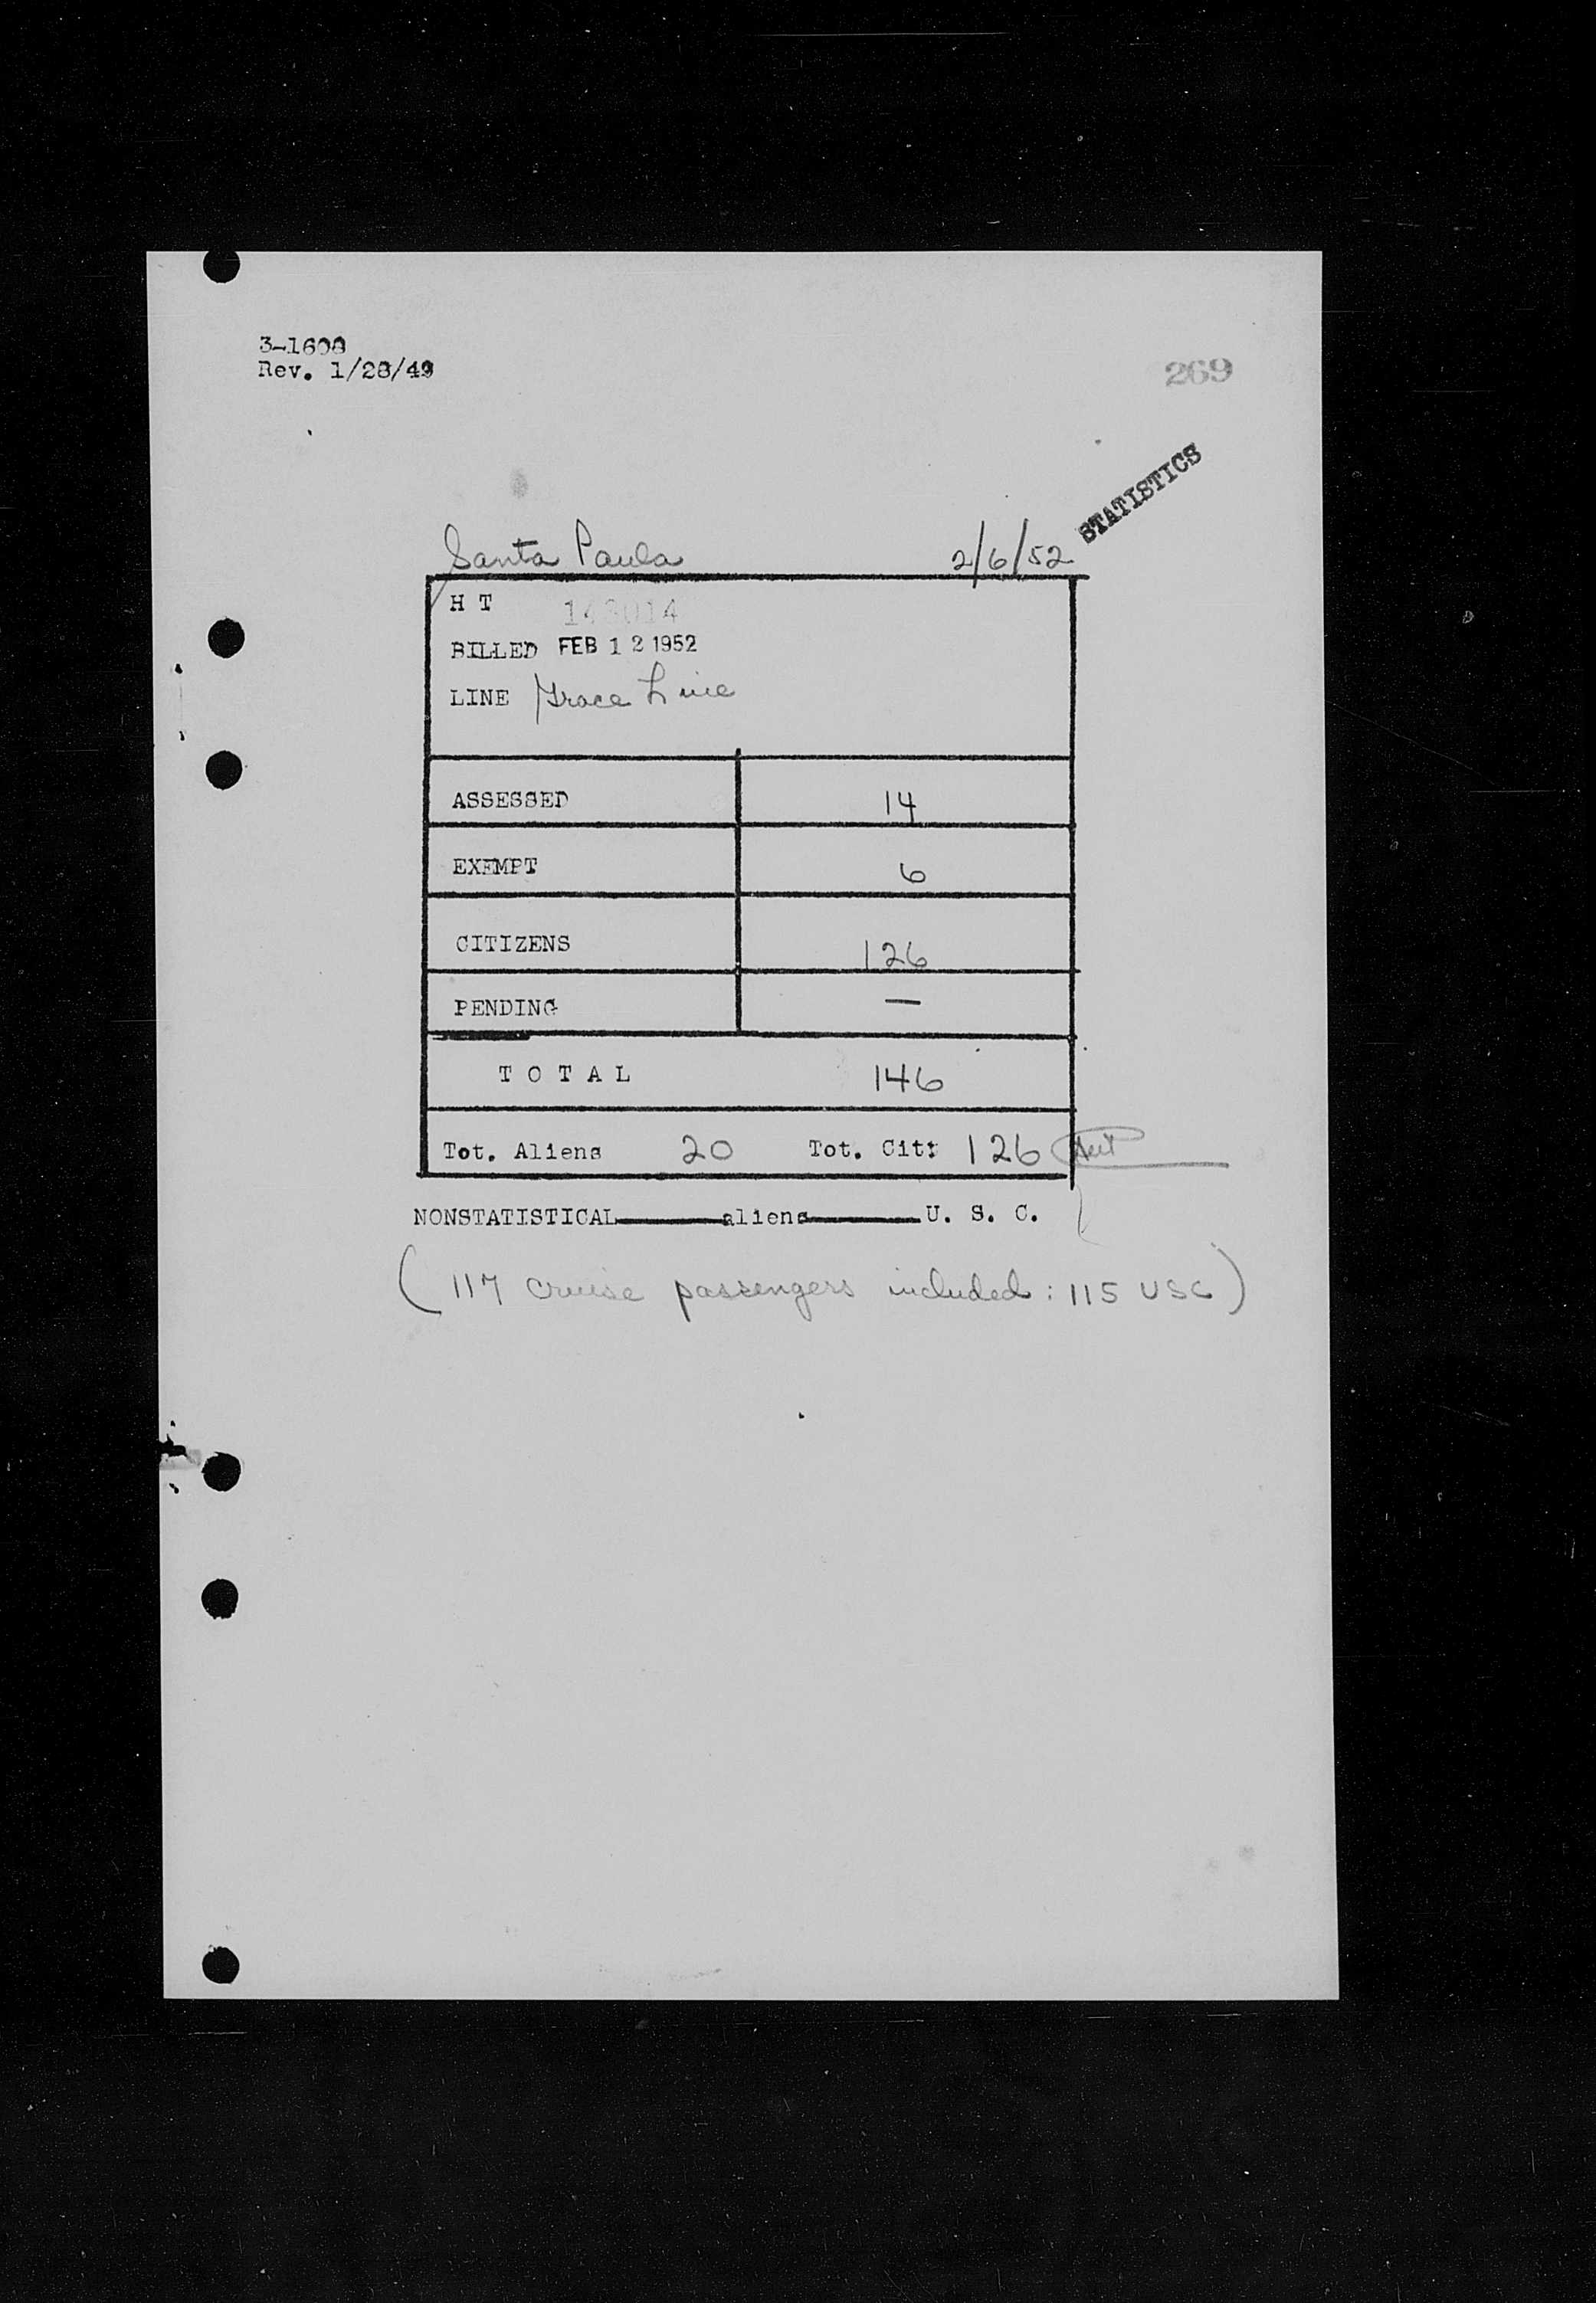 3-1608
Rev. 1/28/49
269
STATISTICS
Santa Paula 2/6/52
H T 148014
BILLED FEB 12 1952
LINE Grace Line
ASSESSED 14
EXEMPT 6
CITIZENS 126
PENDING —
TOTAL 146
Tot. Aliens 20 Tot. Cit: 126
NONSTATISTICAL aliens U. S. C.
(117 cruise passengers included: 115 USC)